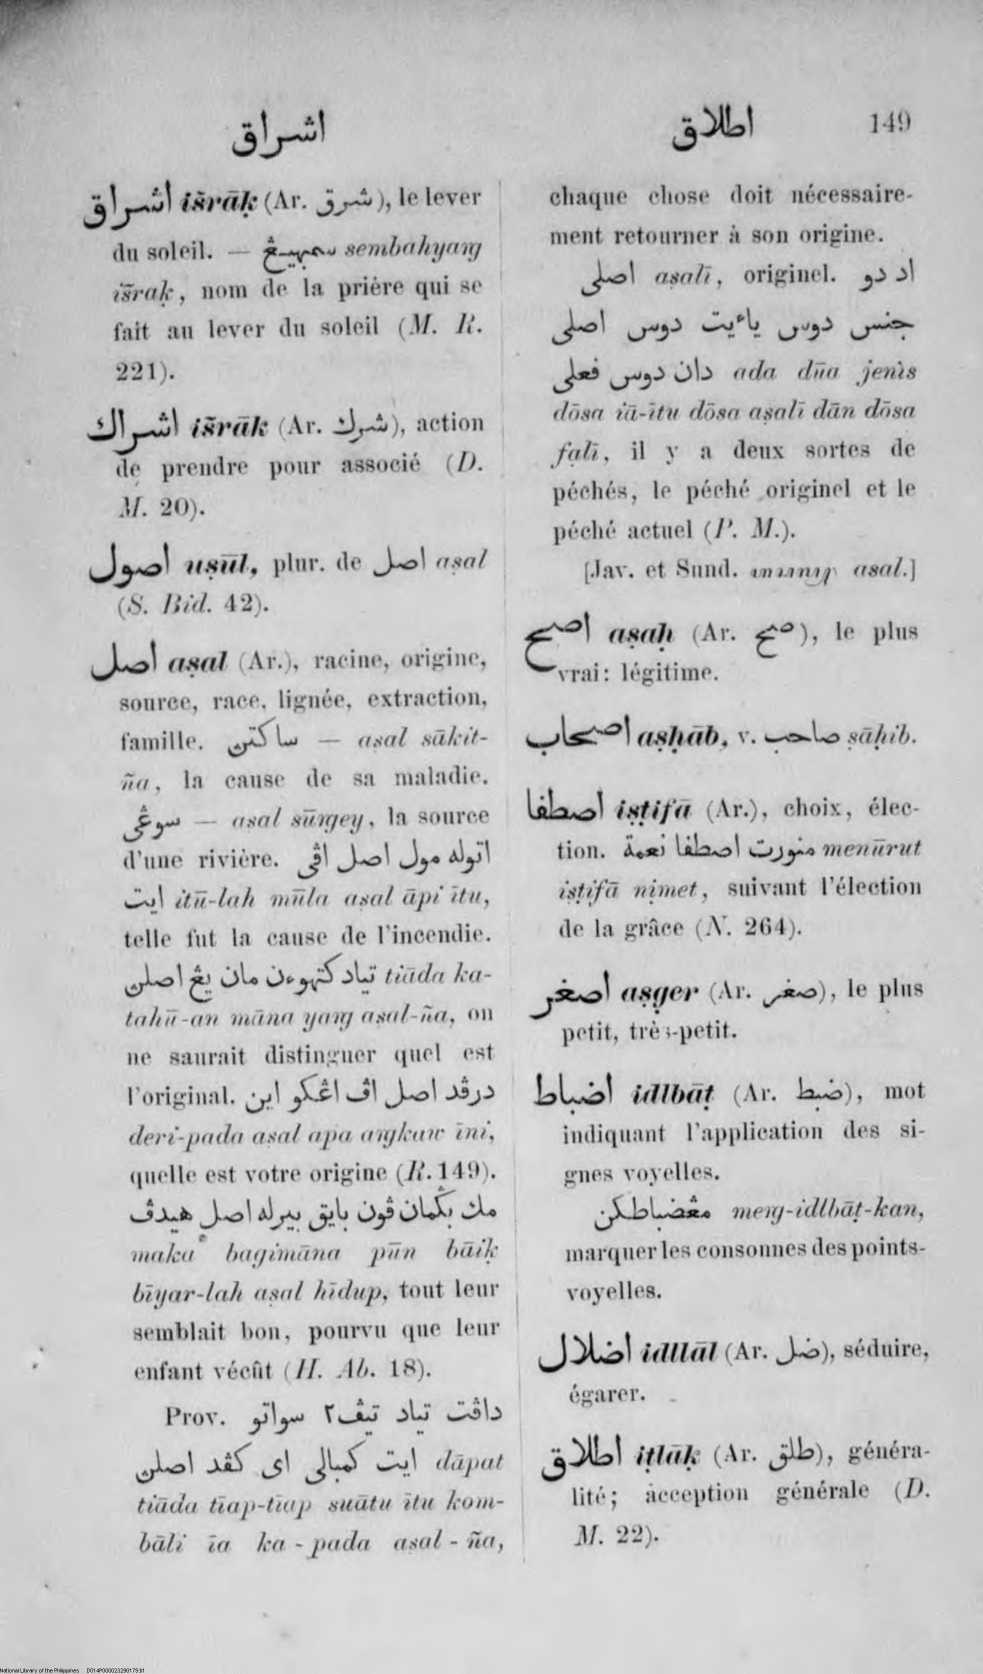 اشراق
اطلاق 149
اشراق išrāḳ (Ar. شرق), le lever
du soleil. — سمبهيـڠ sembahyaṅg
išraḳ, nom de la prière qui se
fait au lever du soleil (M. R.
221).
اشراك išrāk (Ar. شرك), action
de prendre pour associé (D.
M. 20).
اصول uṣūl, plur. de اصل aṣal
(S. Bid. 42).
اصل aṣal (Ar.), racine, origine,
source, race, lignée, extraction,
famille. ساكتن — aṣal sākit-
ña, la cause de sa maladie.
سوڠى — aṣal sūṅgey, la source
d'une rivière. اتوله مول اصل اڤى
ايت itū-lah mūla aṣal āpi ītu,
telle fut la cause de l'incendie.
تياد كتهوءن مان يڠ اصلن tiāda ka-
tahū-an māna yaṅg aṣal-ña, on
ne saurait distinguer quel est
l'original. درڤد اصل اڤ اڠكو اين
deri-pada aṣal apa aṅgkaw īni,
quelle est votre origine (R. 149).
مك بڬيمان ڤون بايق بيرله اصل هيدڤ
maka bagimāna pūn bāiḳ
bīyar-lah aṣal hīdup, tout leur
semblait bon, pourvu que leur
enfant vécût (H. Ab. 18).
Prov. داڤت تياد تيڤ٢ سواتو
ايت كمبالى اى كڤد اصلن dāpat
tiāda tīap-tīap suātu ītu kom-
bāli īa ka-pada aṣal-ña,
chaque chose doit nécessaire-
ment retourner à son origine.
اصلى aṣalī, originel. اد دو
جنس دوس ياءيت دوس اصلى
دان دوس فعلى ada dūa jenìs
dōsa iā-ītu dōsa aṣalī dān dōsa
faḷī, il y a deux sortes de
péchés, le péché originel et le
péché actuel (P. M.).
[Jav. et Sund. asal.]
اصح aṣaḥ (Ar. صح), le plus
vrai: légitime.
اصحاب aṣḥāb, v. صاحب ṣāḥib.
اصطفا iṣṭifā (Ar.), choix, élec-
tion. منورت اصطفا نعمة menūrut
iṣṭifā nimet, suivant l'élection
de la grâce (N. 264).
اصغر aṣger (Ar. صغر), le plus
petit, très-petit.
اضباط idlbāṭ (Ar. ضبط), mot
indiquant l'application des si-
gnes voyelles.
مڠضباطكن meṅg-idlbāṭ-kan,
marquer les consonnes des points-
voyelles.
اضلال idllāl (Ar. ضل), séduire,
égarer.
اطلاق iṭlāḳ (Ar. طلق), généra-
lité; acception générale (D.
M. 22).
National Library of the Philippines